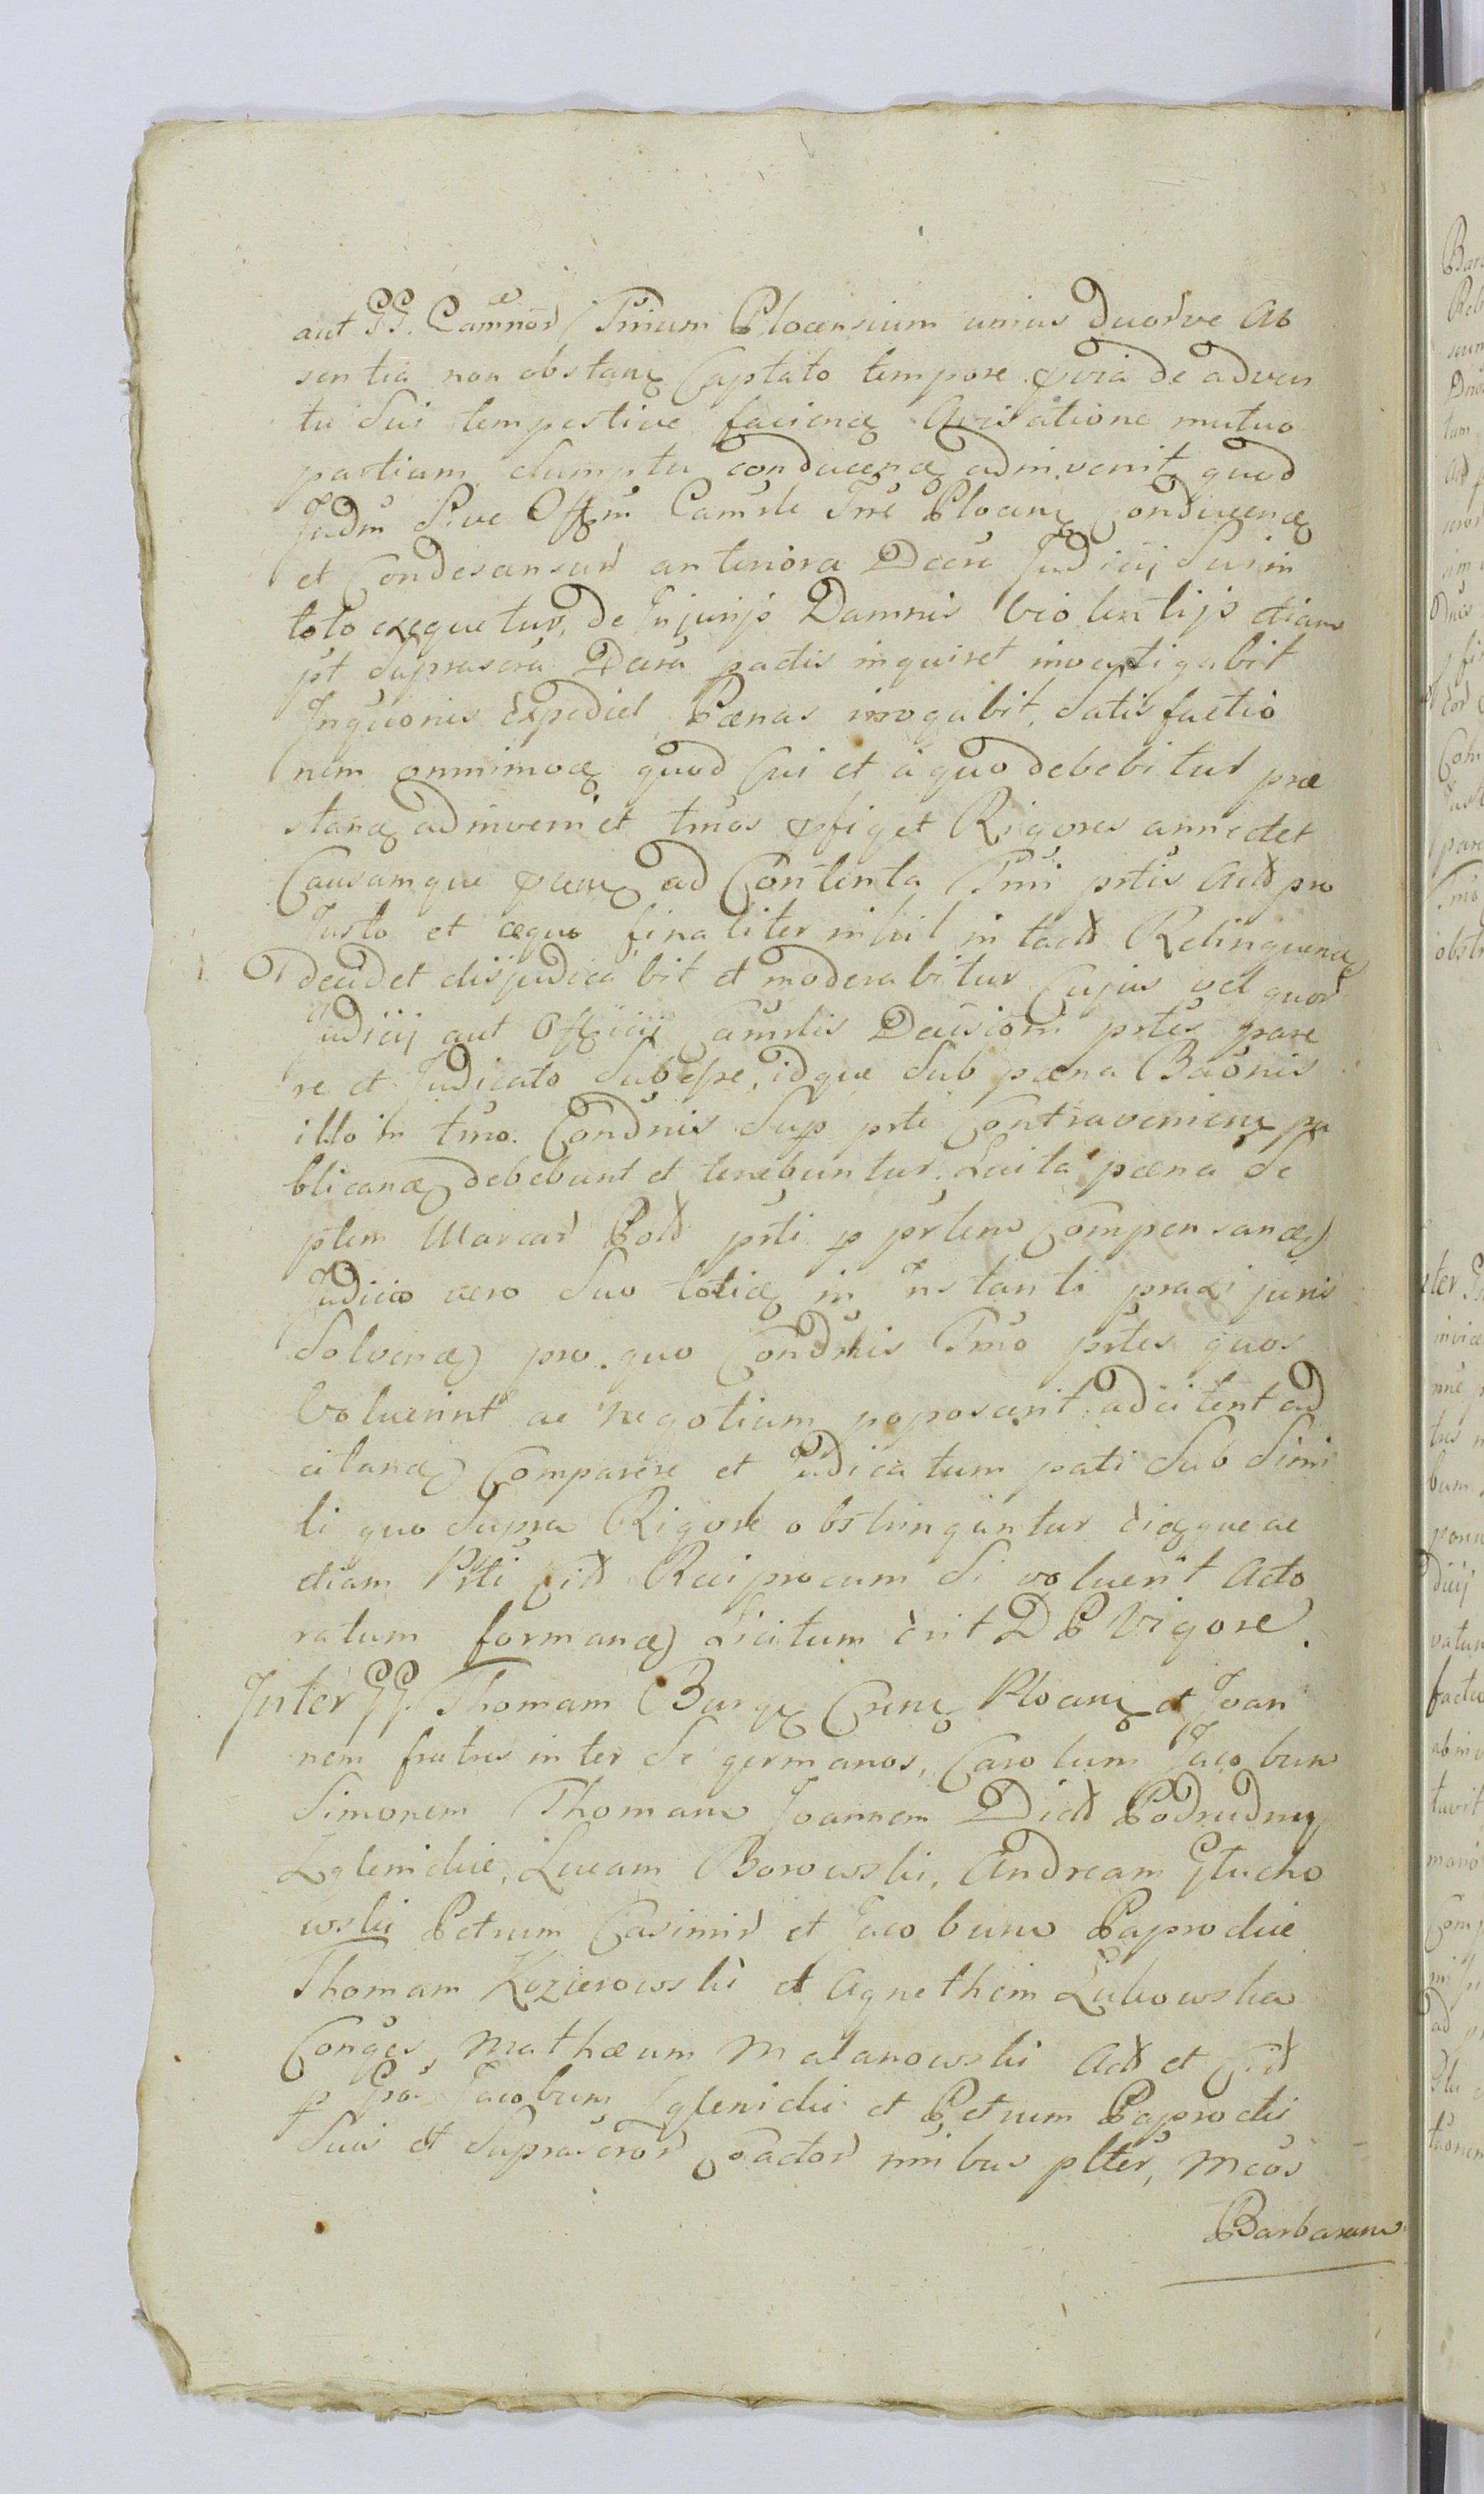 aut GG. Camrior Trium Plocensium unius duorve Ab
sentia non obstan Captato tempore prvia de adven
tu Sui tempestive facienda Avisatione mutuo
partium Sumptu conducend adinvenit quod
Judm Sive Offm Camrle Trre Plocen Conducend
et Condescensur anteriora Decre Judicij Sui in
toto exequetur, de Injurijs Damnis Violentijs etiam
pt Suprascra Decra patis inquiret investigabit
Inquones Expediet Pænas irrogabit, Satisfactio
nem omnimod quod Cui et a quo debebitur præ
stand adinveniet tmos pfiget Rigores annectet
Causamque pcen ad Contenta Tmi prtis Act pro
Justo et æquo finaliter nihil intact Relinquend
decidet disjudicabit et moderabitur Cujus vel quor
Judicij aut Officij Camrlis Decisioni prtes pare
re et Judicato Subesse, idque Sub pæna Baonis
illo in tmo. Condnis Sup prte Contravenien pu
blicand debebunt et tenebuntur. Luita pæna Se
ptem Marcar Pol prti p prtem Compensand
Judicio vero Suo totid in Instanti praxi juris
Solvend pro quo Condnis Tmo prtes quos
Voluerint ac negotium poposcerit adcitent ad
citand Comparere et Judicatum pati Sub Simi
li quo Supra Rigore obstringuntur eidque ac
etiam Prti Cit Reciprocum Si voluerit Acto
ratum formand Licitum erit D P Vigore.
Inter GG. Thomam Burg Cren Plocen et Joan
nem fratres inter Se germanos, Carolum Jacobum
Simonem Thomam Joannem Dict Podrudny
Zglenickie, Lucam Borowski, Andream Głucho
wski Petrum Casimir et Jacobum Paprockie
Thomam Kozierowski et Agnethem Lubowska
Conges, Mathæum Malanowski Act et Cit
p Gros Jacobum Zglenicki et Petrum Paprocki
Suis et Suprascror Coactor nnibus plter, Mcos
Barbaram